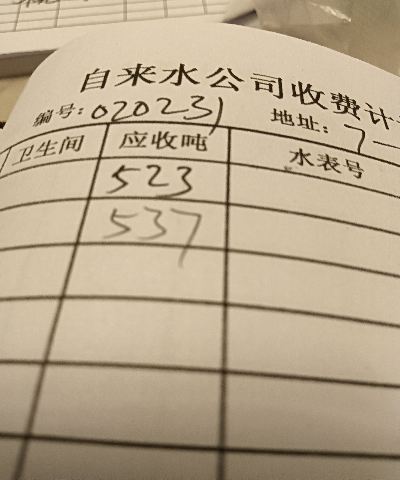 自来水公司收费计
编号: 020231 地址: 7-
卫生间 应收吨 水表号
523
537